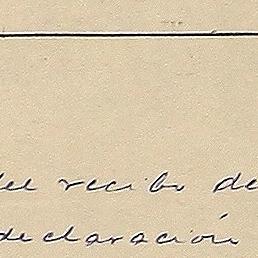 del recibo de
declaración